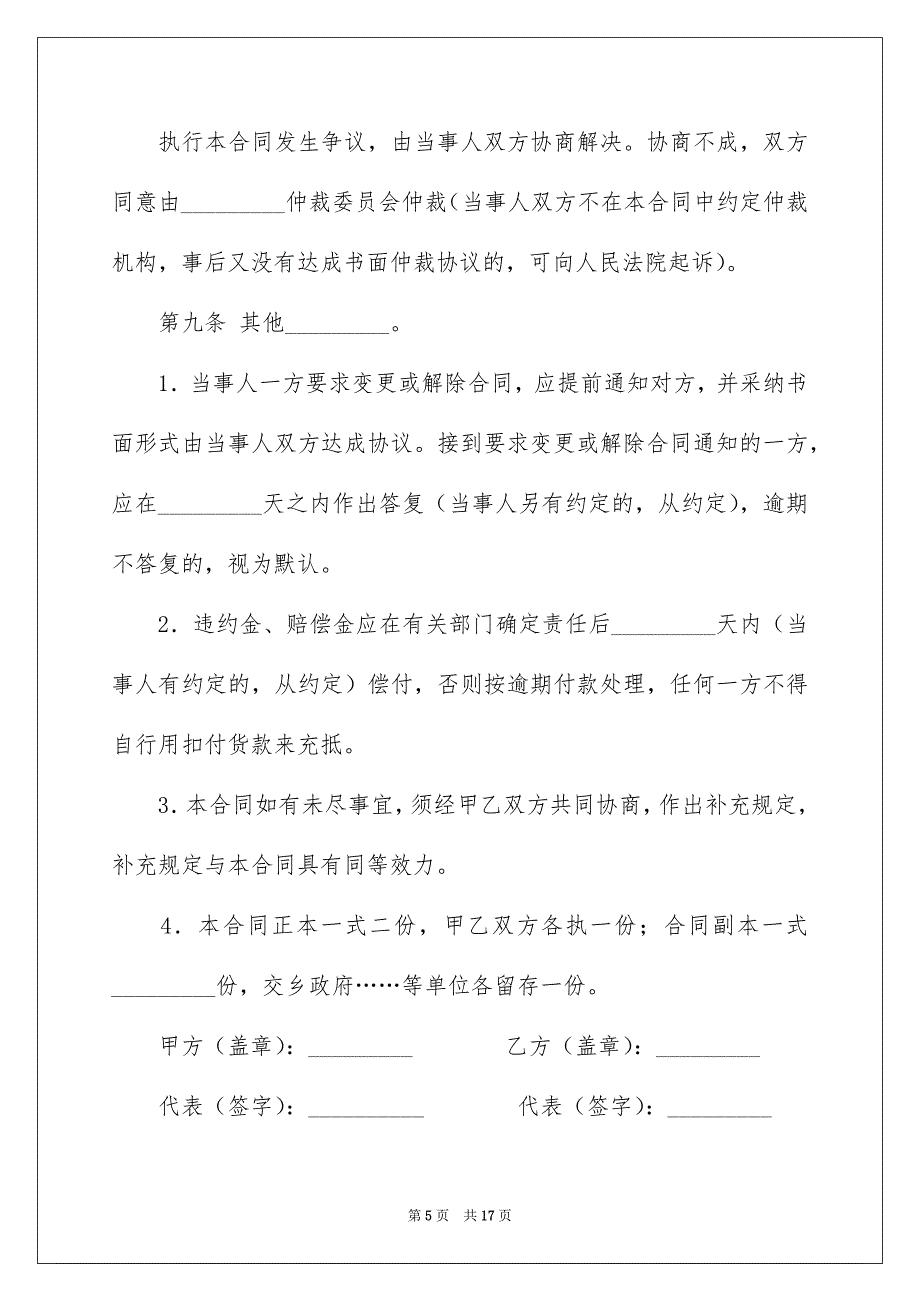 执行本合同发生争议，由当事人双方协商解决。协商不成，双方
同意由_________仲裁委员会仲裁（当事人双方不在本合同中约定仲裁
机构，事后又没有达成书面仲裁协议的，可向人民法院起诉）。
第九条 其他_________。
1．当事人一方要求变更或解除合同，应提前通知对方，并采纳书
面形式由当事人双方达成协议。接到要求变更或解除合同通知的一方，
应在_________天之内作出答复（当事人另有约定的，从约定），逾期
不答复的，视为默认。
2．违约金、赔偿金应在有关部门确定责任后_________天内（当
事人有约定的，从约定）偿付，否则按逾期付款处理，任何一方不得
自行用扣付货款来充抵。
3．本合同如有未尽事宜，须经甲乙双方共同协商，作出补充规定，
补充规定与本合同具有同等效力。
4．本合同正本一式二份，甲乙双方各执一份；合同副本一式
_________份，交乡政府……等单位各留存一份。
甲方（盖章）：_________ 乙方（盖章）：_________
代表（签字）：__________ 代表（签字）：_________
第 5 页 共 17 页